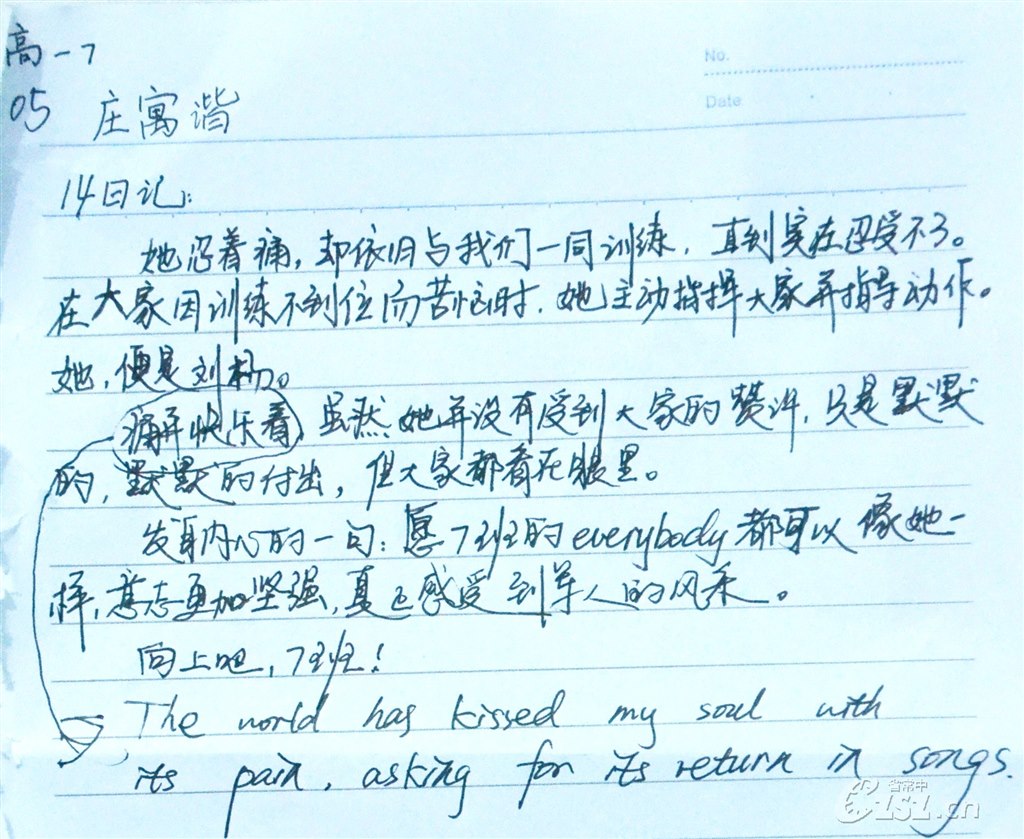 高一7
No.
Date
05 庄寓谐
14日记:
她忍着痛,却依旧与我们一同训练,直到实在忍受不了。
在大家因训练不到位而苦恼时,她主动指挥大家并指导动作。
她,便是刘杨。
痛并快乐着,虽然她并没有受到大家的赞许,只是默默
的,默默的付出,但大家都看在眼里。
发自内心的一句:愿7班的everybody都可以像她一
样,意志更加坚强,真正感受到军人的风采。
向上吧,7班!
The world has kissed my soul with
its pain, asking for its return in songs.
省常中
6151.cn